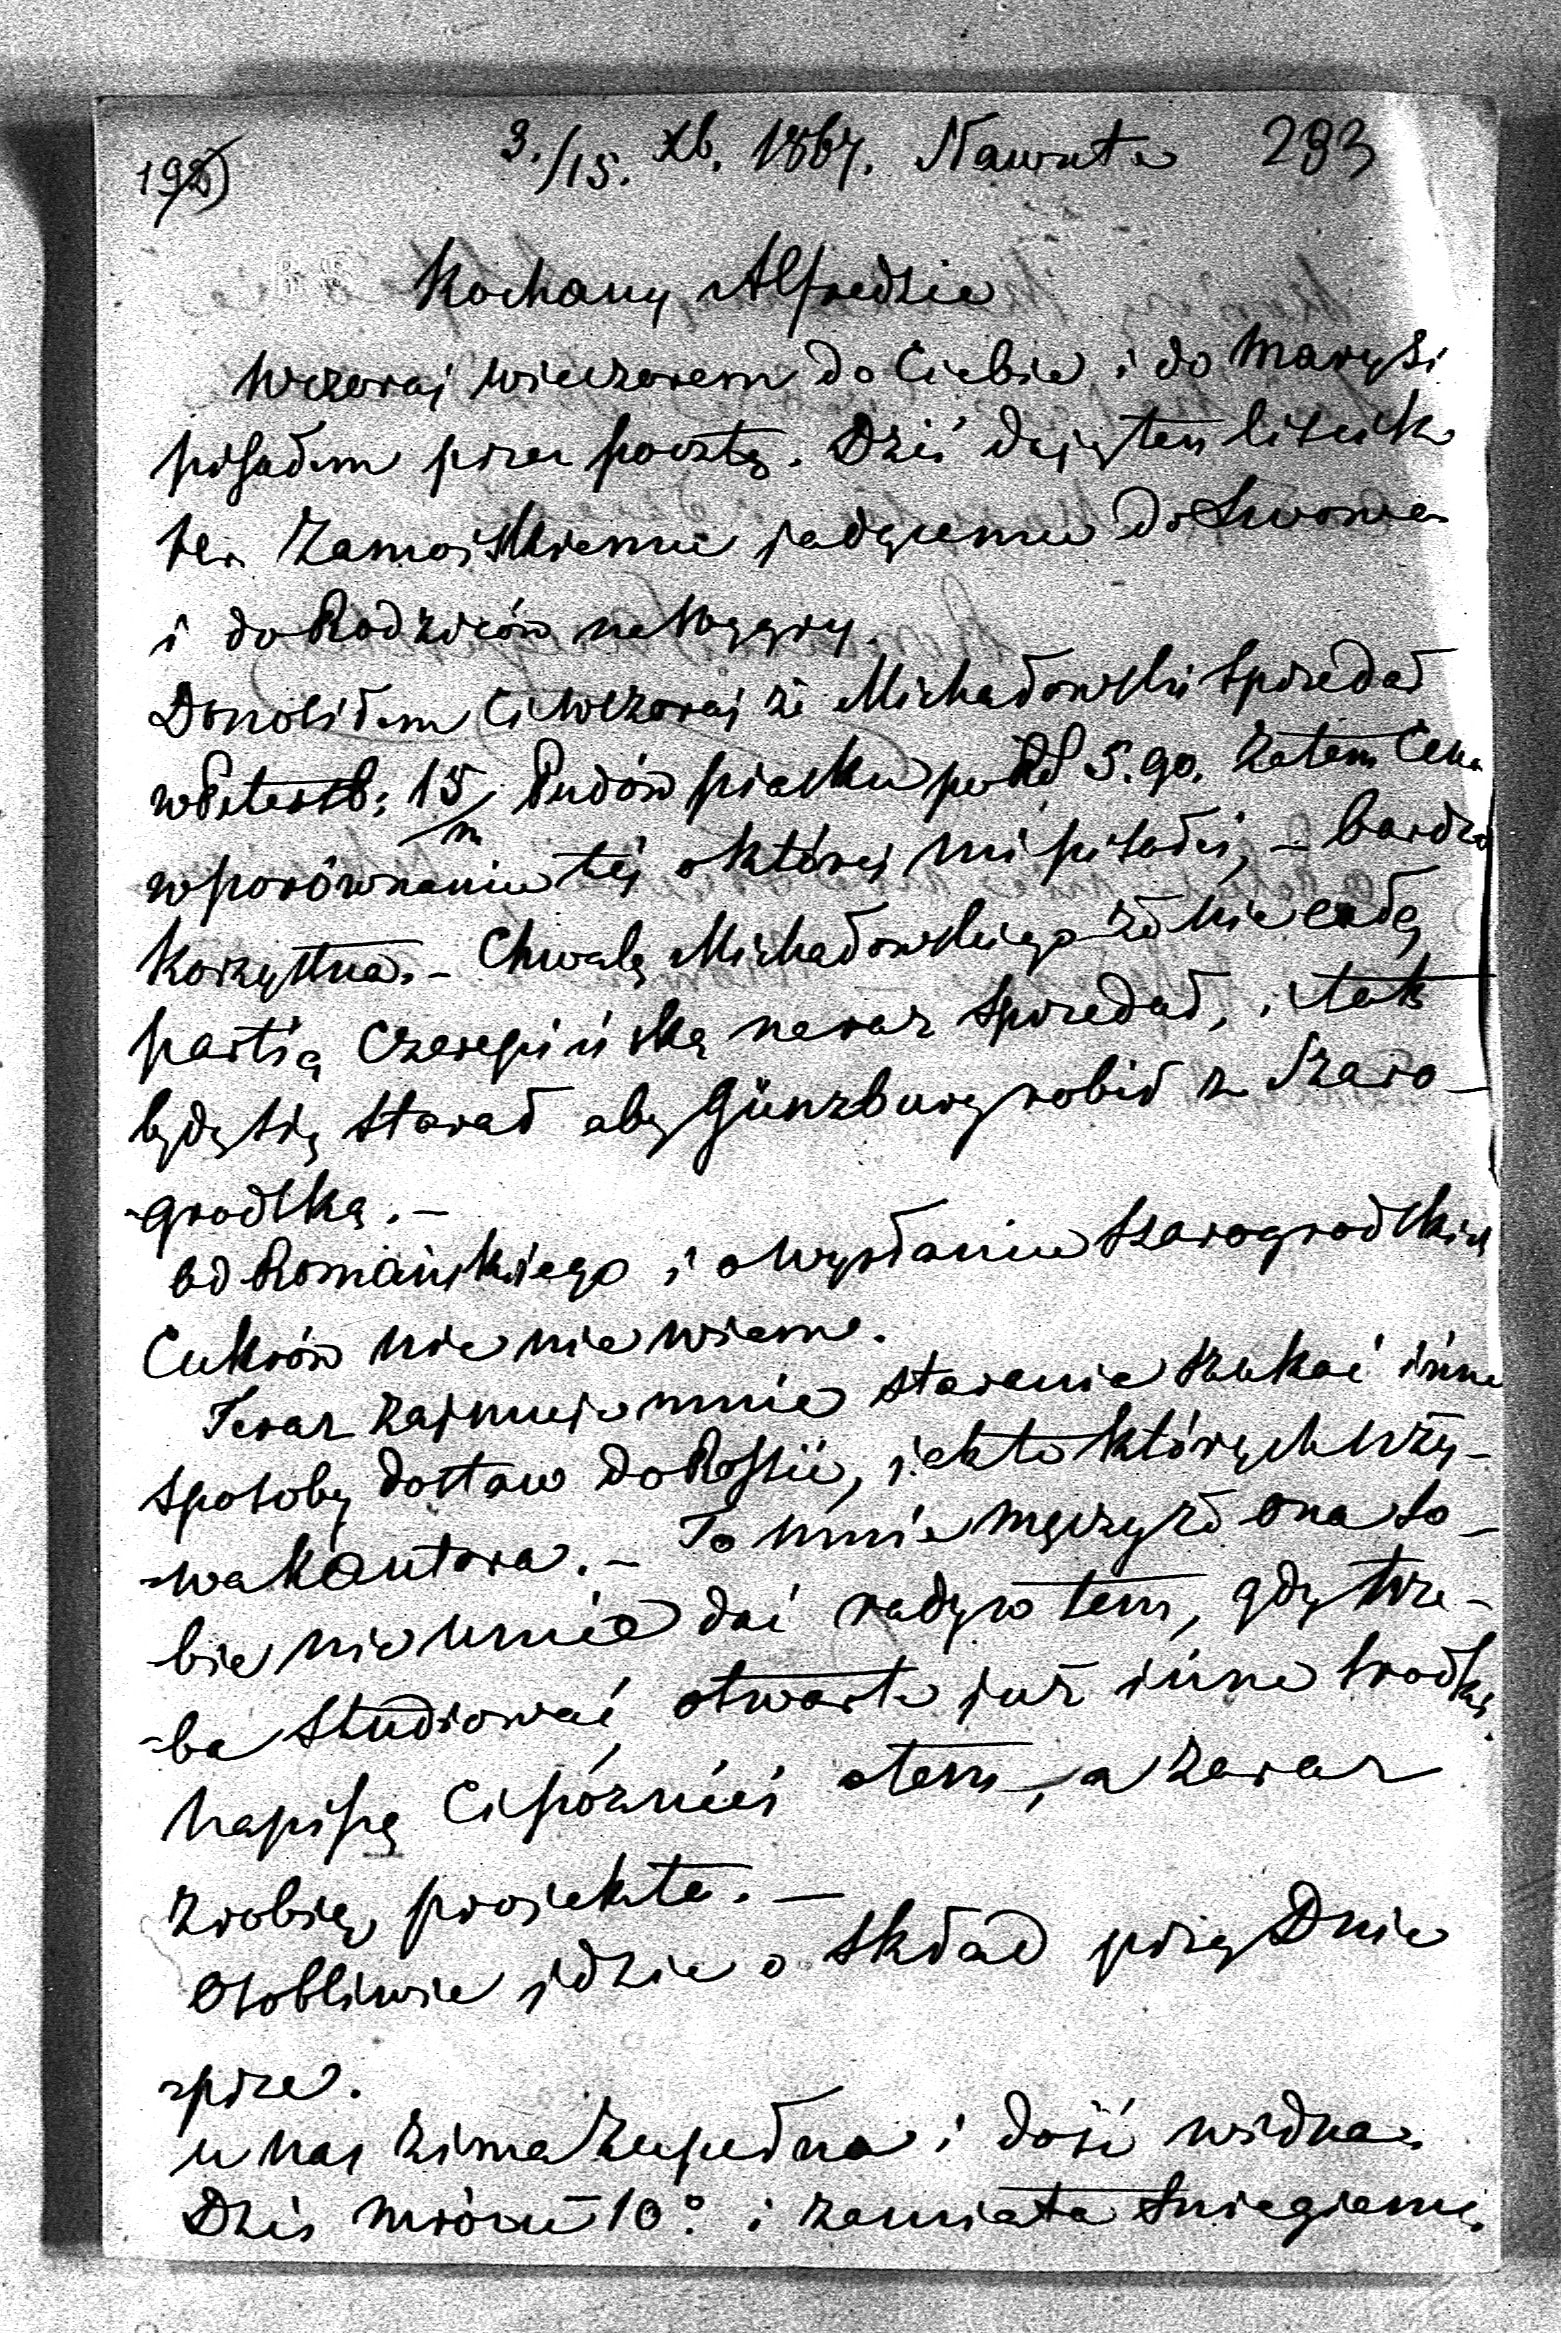 192)
3./15. Xb. 1867. Nawuta 293
Kochany Alfredzie
Wczoraj wieczorem do Ciebie i do Marysi
pisałem przez pocztę. Dziś daję ten liścik
Zamoiskiemu jadącemu do Lwowa
i do Rodziców na Węgry.
Donosiłem Ci wczoraj że Michałowski sprzedał
w Petersb: 15/m Pudów piasku po 5.90. zatem Cena
w porównaniu téj o któréj mi pisałeś, – bardzo
korzystna. – Chwalę Michałowskiego że nie całą
partią Czerepińską naraz sprzedał, i tak
będę się starał aby Günzburg robił z Szaro-
-grodzką. –
od Romańskiego i o wysłaniu Szarogrodzkich
Cukrów nic nie wiem.
Teraz zajmuje mnie staranie szukać inne
sposoby dostaw do Rossii, jak te których uży-
-wa Kantora. – To mnie męczy że ona so-
-bie nie umie dać rady w tem, gdy trze-
-ba studiować otwarte już inne srodki.
Napiszę Ci późniéj o tem, a zaraz
zrobię projekta. –
Osobliwie idzie o skład przy Dnie
-prze.
u nas zima zupełna i dość widna.
Dziś mrózu 10° i zamiata śniegiem.